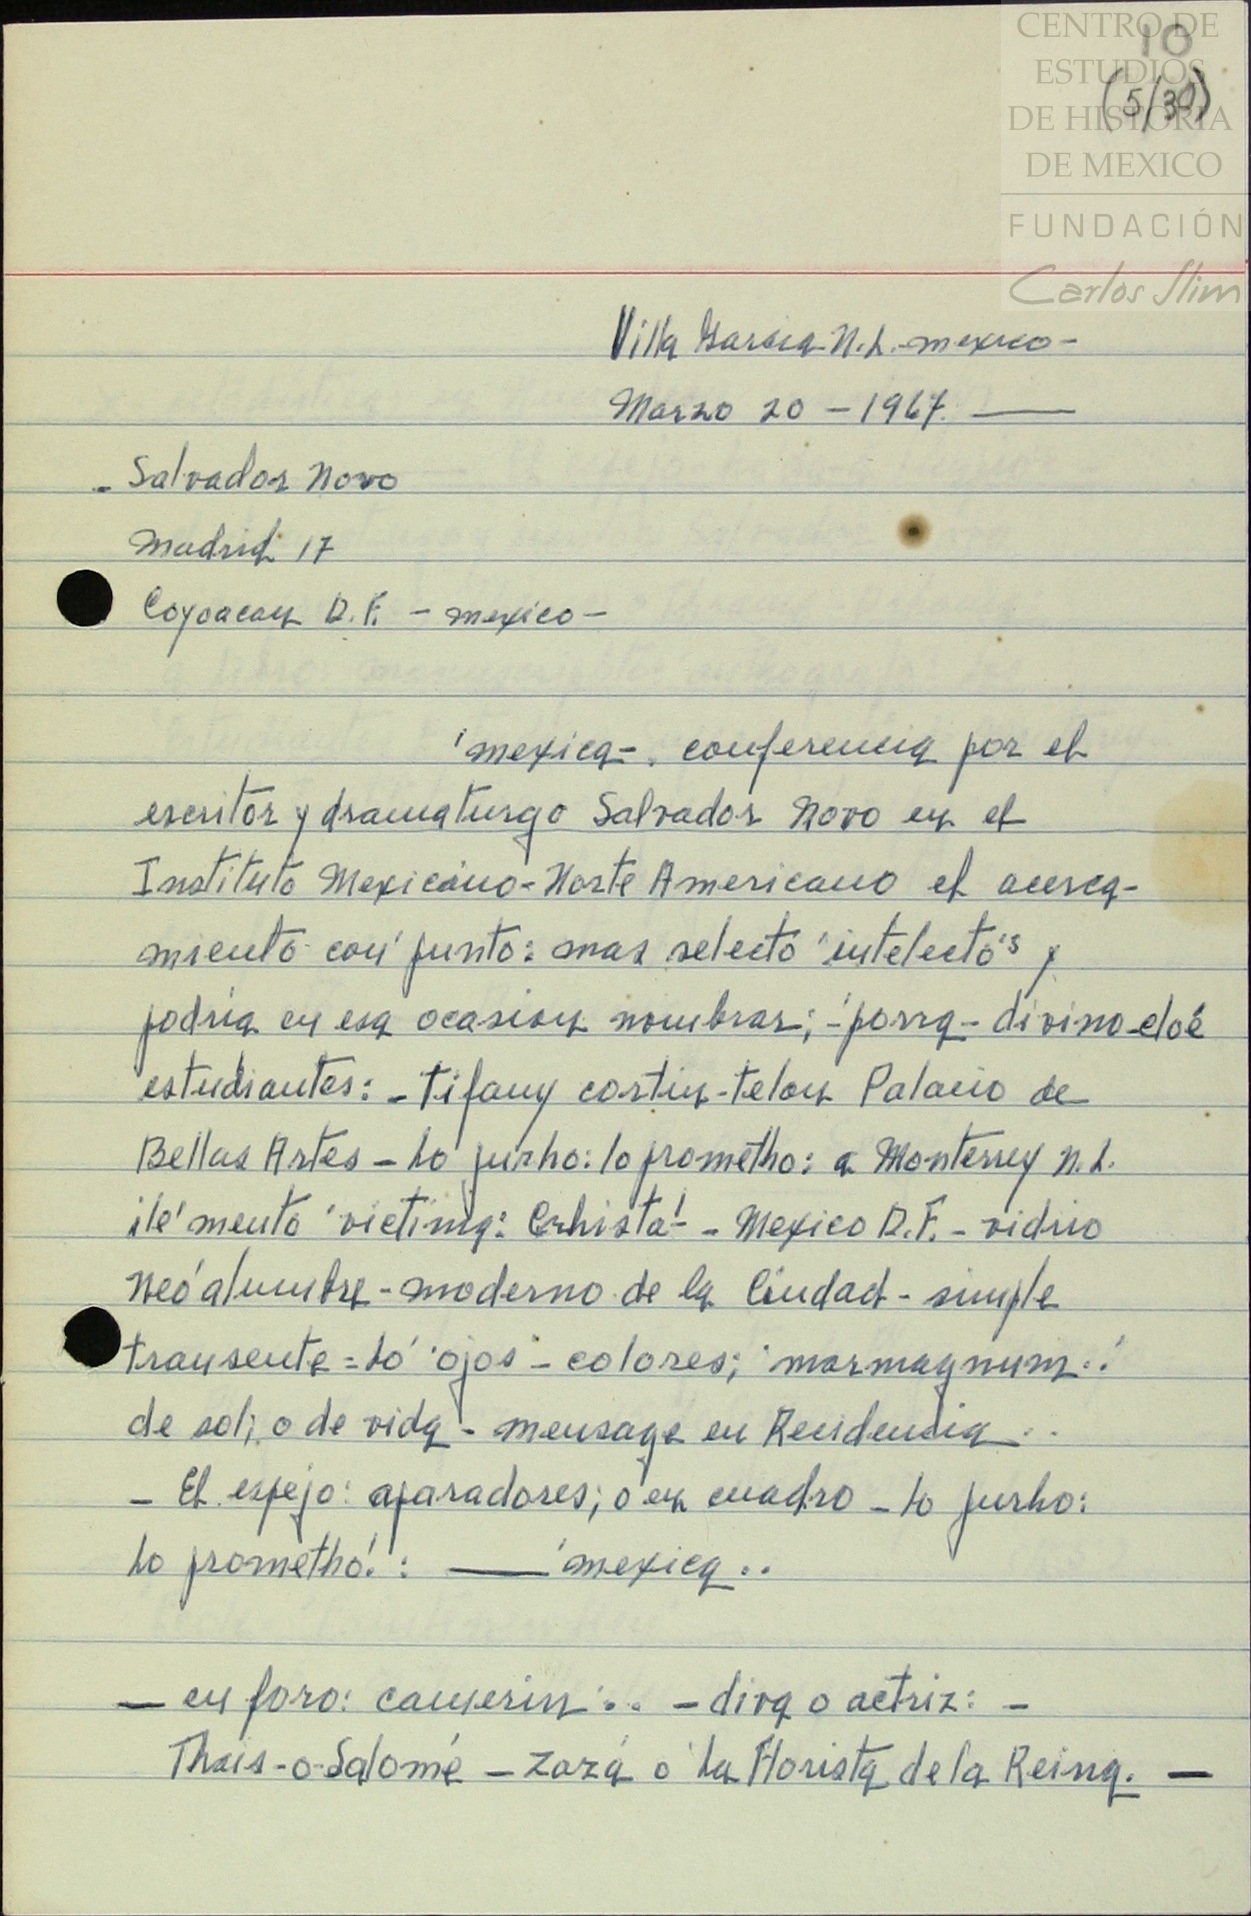 CENTRO DE
ESTUDIOS
DE HISTORIA
DE MEXICO
FUNDACIÓN
Carlos Slim
10
(5/30)
Villa Garcia N.L. mexico-
Marzo 20 - 1967.
- Salvador Novo
Madrid 17
Coyoacan D.F. - mexico -
'mexica-. conferencia por el
escritor y dramaturgo Salvador Novo en el
Instituto Mexicano-Norte Americano el acerca-
miento con' junto: mas selecto 'intelecto's y
podria en esa ocasion nombrar; - porra - divino
estudiantes: - Tifany cortin-telon Palacio de
Bellas Artes - Lo jurho: lo prometho: a Monterrey N.L.
ile' mento 'victima: - Mexico D.F. - vidrio
Neo'alumbre - moderno de la Ciudad - simple
transente = Lo' 'ojos - colores; 'marmagnum..'
de sol; o de vida - mensage en Residencia..
- El espejo: aparadores; o en cuadro - Lo jurho:
Lo prometho!: — 'mexica..
— en foro: camerin:.. - diva o actriz: -
Thais - o - Salomé - Zazá o La Florista de la Reina. —